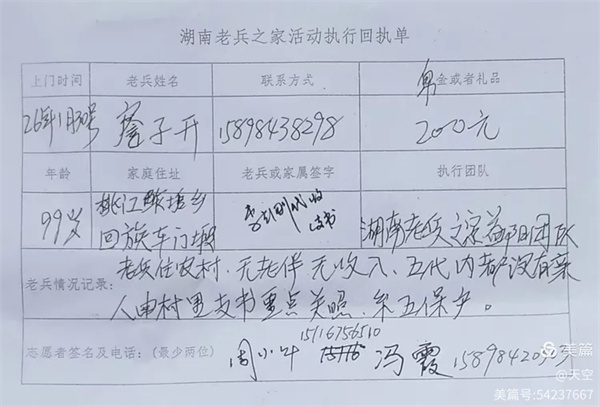 湖南老兵之家活动执行回执单
上门时间 老兵姓名 联系方式 金或者礼品
26年1月30号 子开 15898438298 2000元
年龄 家庭住址 老兵或家属签字 执行团队
99岁 桃江鲊埠乡 代收
回族车门塅 支书 湖南老兵之家益阳团队
老兵住农村,无老伴无收入,五代内都没有亲
老兵情况记录:
人由村里支书重点关照,系五保户。
15116756510
志愿者签名及电话:(最少两位) 周小 冯霞
美篇
@天空
美篇号:54237667